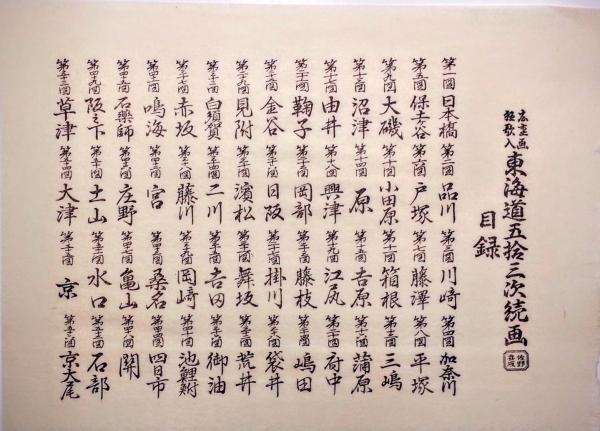 広重画
狂歌入
東海道五拾三次続画
目録
第一図 日本橋 第二図 品川 第三図 川崎 第四図 加奈川
第五図 保土谷 第六図 戸塚 第七図 藤澤 第八図 平塚
第九図 大磯 第十図 小田原 第十一図 箱根 第十二図 三嶋
第十三図 沼津 第十四図 原 第十五図 吉原 第十六図 蒲原
第十七図 由井 第十八図 興津 第十九図 江尻 第二十図 府中
第二十一図 鞠子 第二十二図 岡部 第二十三図 藤枝 第二十四図 嶋田
第二十五図 金谷 第二十六図 日阪 第二十七図 掛川 第二十八図 袋井
第二十九図 見附 第三十図 濱松 第三十一図 舞坂 第三十二図 荒井
第三十三図 白須賀 第三十四図 二川 第三十五図 吉田 第三十六図 御油
第三十七図 赤坂 第三十八図 藤川 第三十九図 岡崎 第四十図 池鯉鮒
第四十一図 鳴海 第四十二図 宮 第四十三図 桑名 第四十四図 四日市
第四十五図 石薬師 第四十六図 庄野 第四十七図 亀山 第四十八図 関
第四十九図 阪之下 第五十図 土山 第五十一図 水口 第五十二図 石部
第五十三図 草津 第五十四図 大津 第五十五図 京 第五十六図 京大尾